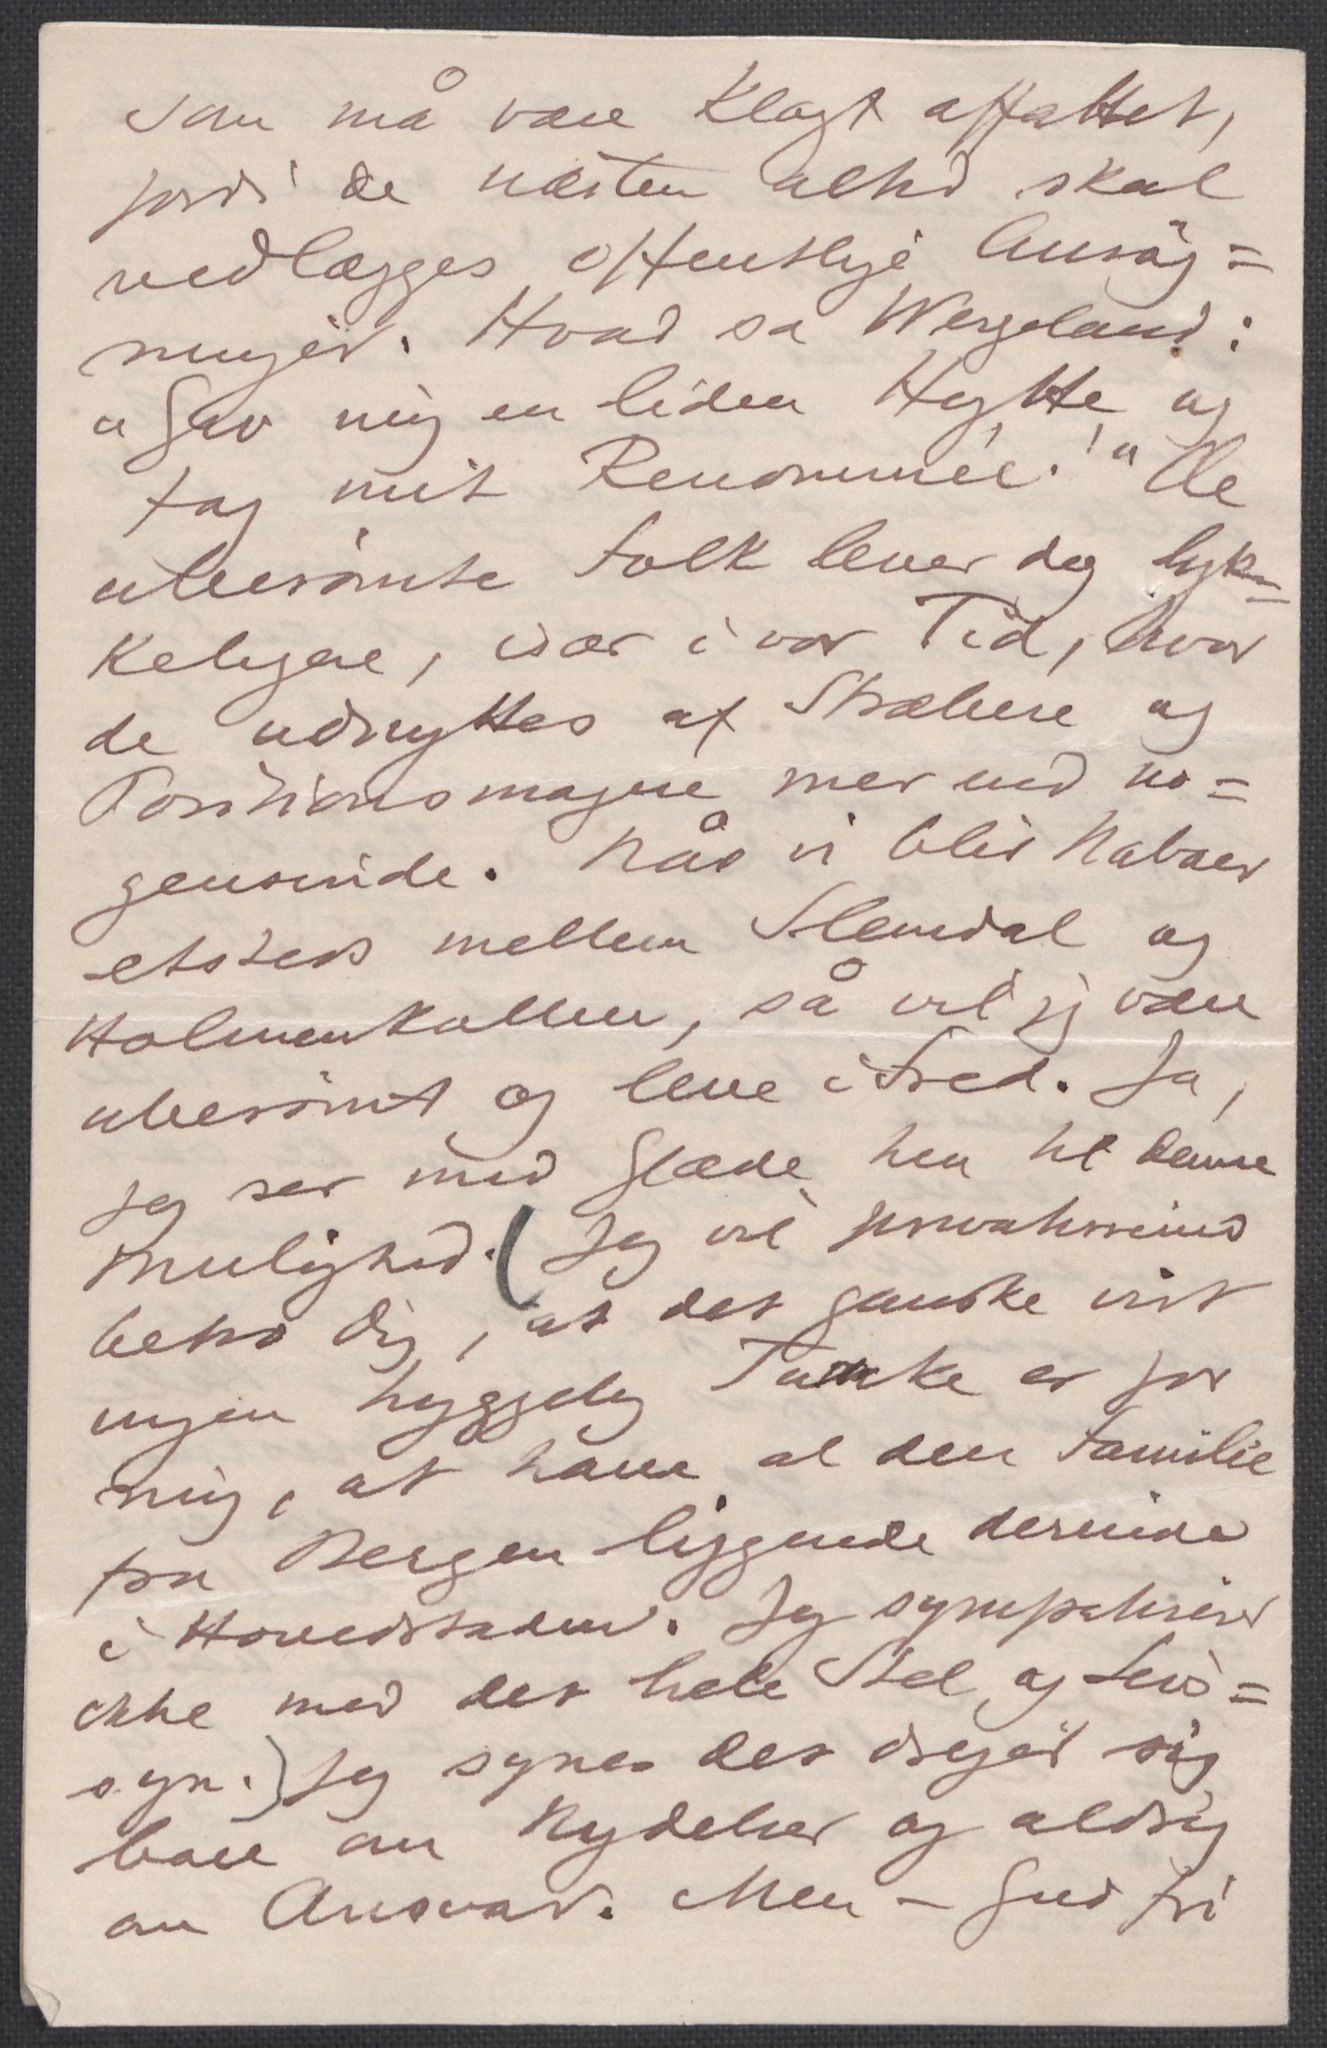 som må være klogt affattet,
fordi de næsten altid skal
vedlægges offentlige Ansøg=
ninger. Hvad sa Wergeland:
"Gav mig en liden Hytte og
tag mit Renommée!" De
uberømte Folk lever dog lyk=
keligere, især i vor Tid, hvor
de udnyttes af Stræbere og
Positionsmagere mer end no=
gensinde. Når vi blir Naboer
etsteds mellem Slemdal og
Holmenkollen, så vil jeg være
uberømt og leve i Fred. Ja,
jeg ser med Glæde hen til denne
Mulighed. (Jeg vil privatissime
betro Dig, at det ganske vist
ingen hyggelig Tanke er for
mig, at have al den Familie
fra Bergen liggende derinde
i Hovedstaden. Jeg sympatiserer
ikke med det hele Stel og Livs=
syn.) Jeg synes det drejer sig
bare om Nydelser og aldrig
om Ansvar. Men – Gud fri